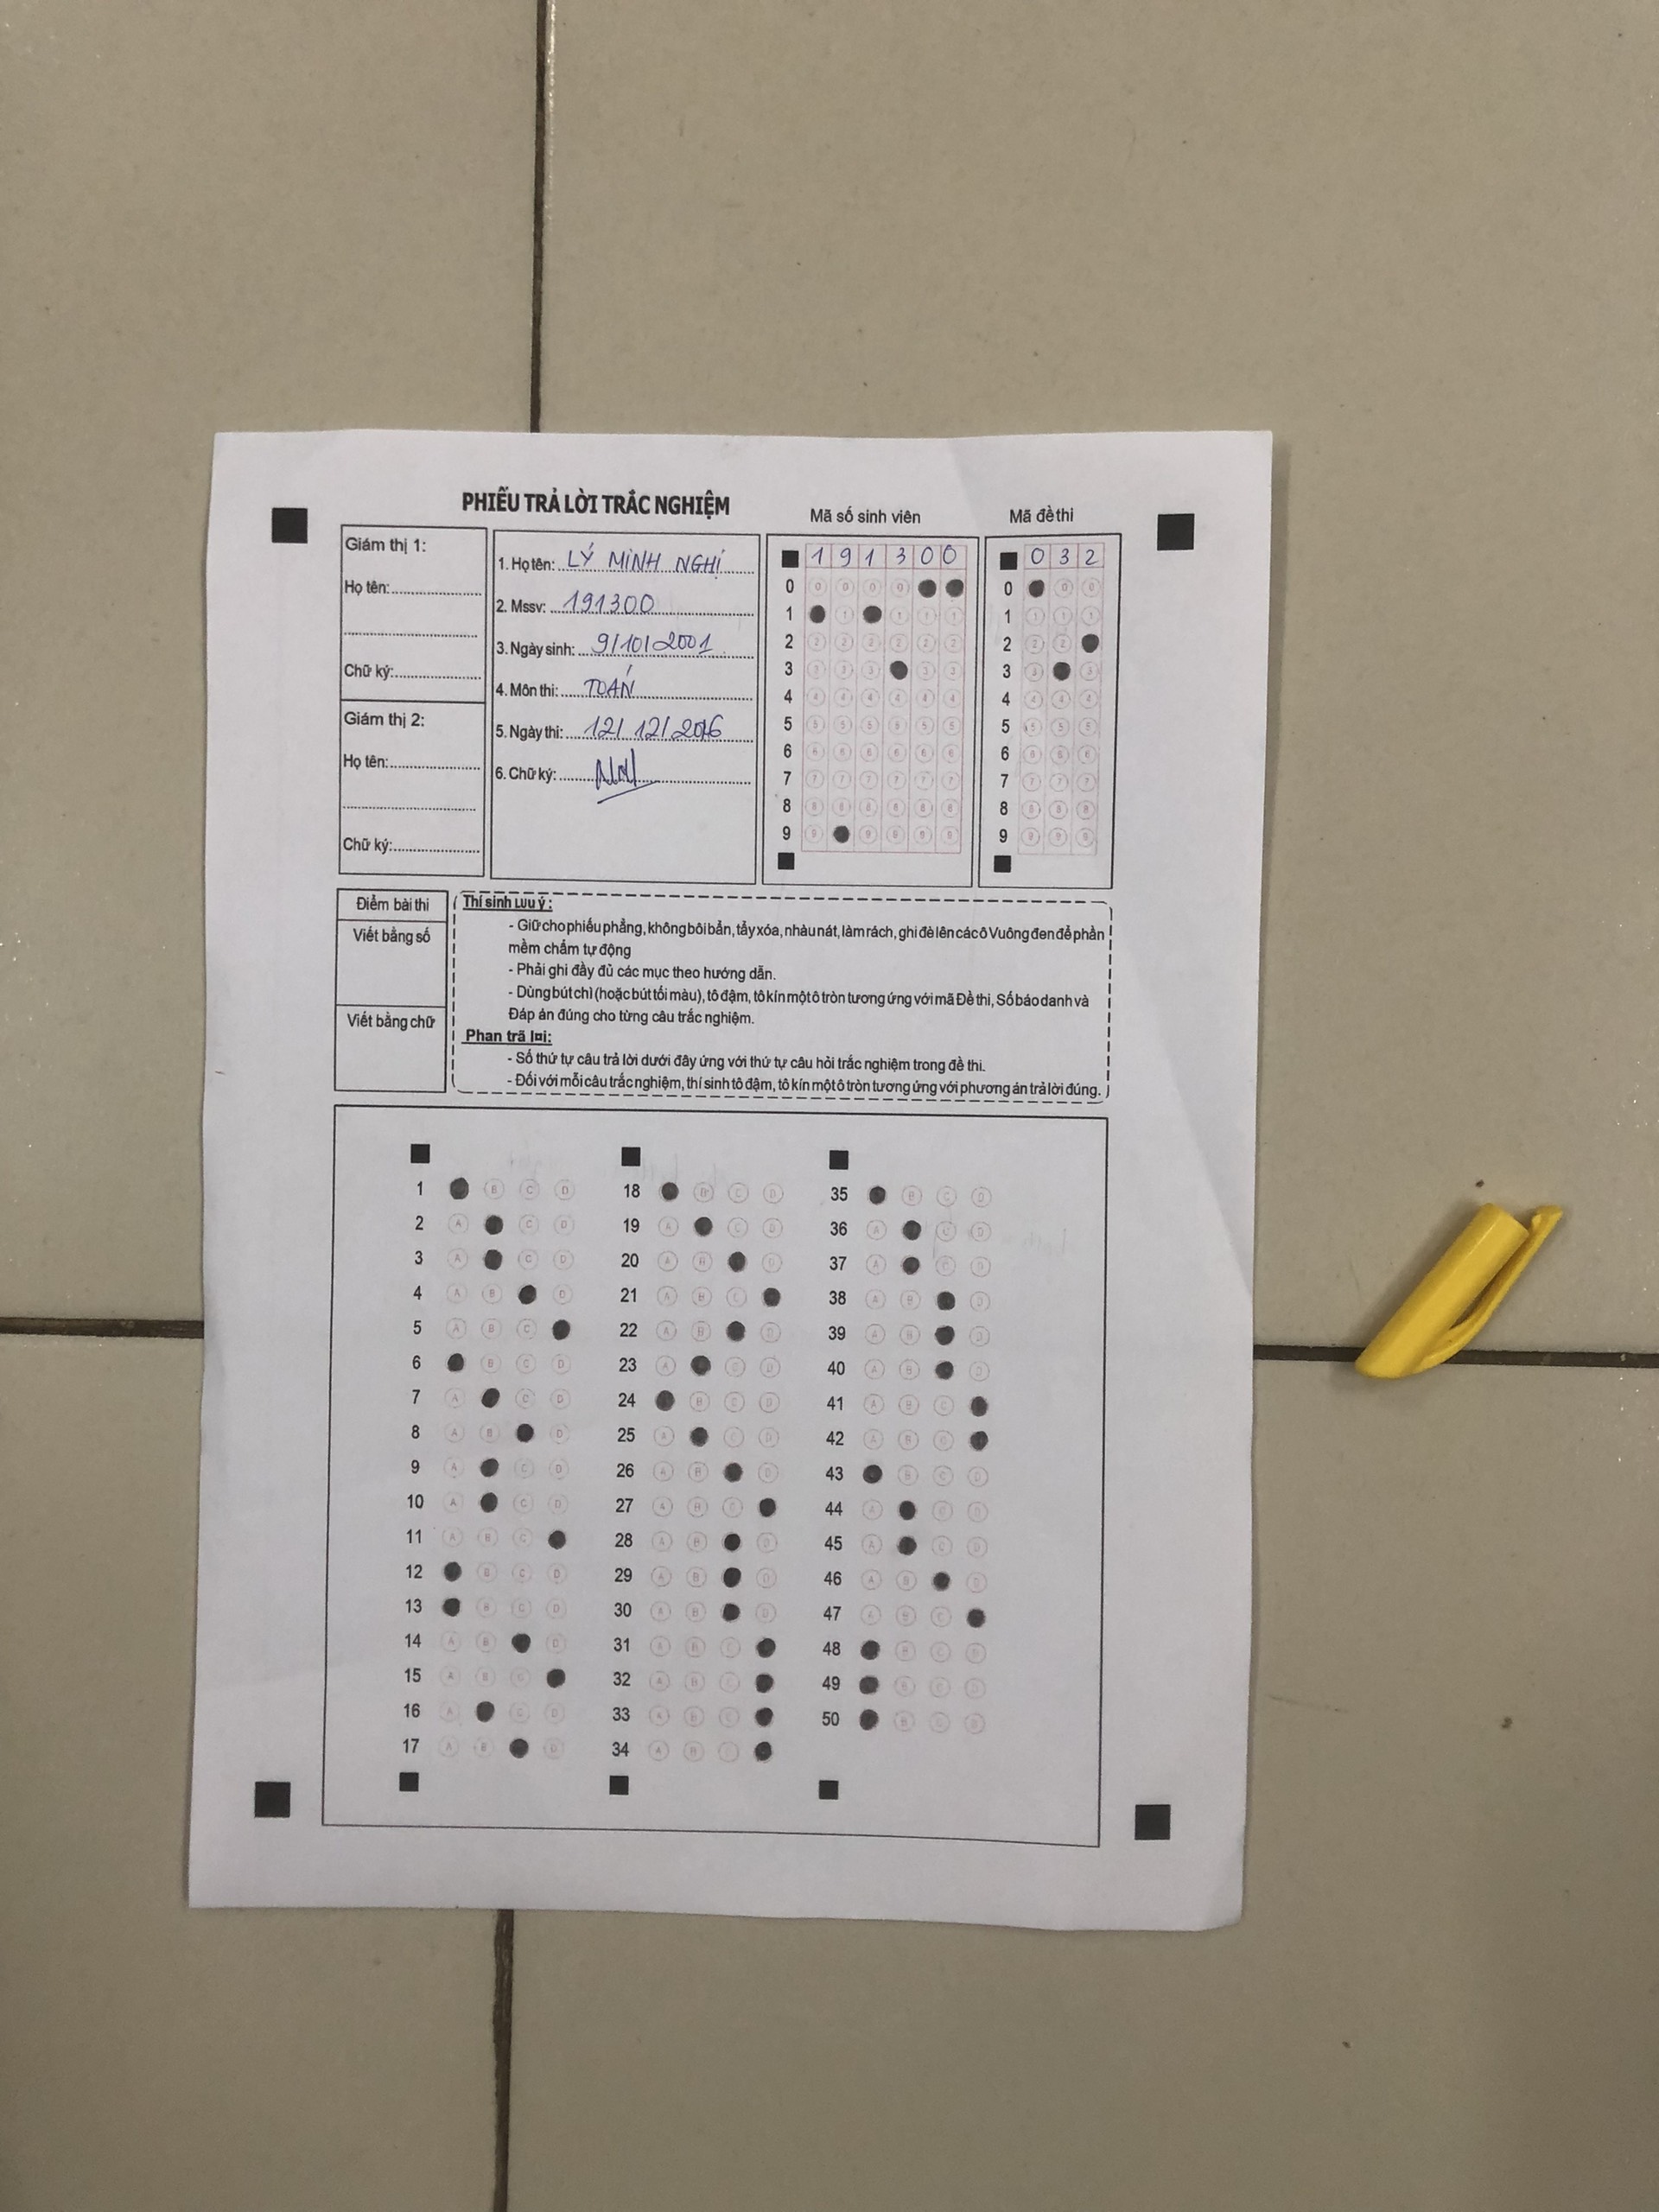 PHIẾU TRẢ LỜI TRẮC NGHIỆM
Giám thị 1:
Họ tên:
Chữ ký:
Giám thị 2:
Họ tên:
Chữ ký:
1. Họ tên: LÝ MINH NGHỊ
2. Mssv: 191300
3. Ngày sinh: 9/10/2001
4. Môn thi: TOÁN
5. Ngày thi: 12/12/2016
6. Chữ ký:
Mã số sinh viên
1 9 1 3 0 0
0 0 0 0 0
1 1 1 1 1
2 2 2 2 2 2 2
3 3 3 3 3 3
4 4 4 4 4 4 4
5 5 5 5 5 5 5
6 6 6 6 6 6 6
7 7 7 7 7 7 7
8 8 8 8 8 8 8
9 9 9 9 9 9
Mã đề thi
0 3 2
0 0 0
1 1 1 1
2 2 2
3 3 3
4 4 4 4
5 5 5 5
6 6 6 6
7 7 7 7
8 8 8 8
9 9 9 9
Điểm bài thi
Viết bằng số
Viết bằng chữ
Thí sinh Lưu ý :
- Giữ cho phiếu phẳng, không bôi bẩn, tẩy xóa, nhàu nát, làm rách, ghi đè lên các ô Vuông đen để phần
mềm chấm tự động
- Phải ghi đầy đủ các mục theo hướng dẫn.
- Dùng bút chì (hoặc bút tối màu), tô đậm, tô kín một ô tròn tương ứng với mã Đề thi, Số báo danh và
Đáp án đúng cho từng câu trắc nghiệm.
- Số thứ tự câu trả lời dưới đây ứng với thứ tự câu hỏi trắc nghiệm trong đề thi.
- Đối với mỗi câu trắc nghiệm, thí sinh tô đậm, tô kín một ô tròn tương ứng với phương án trả lời đúng.
1 B C D
2 A C D
3 A C D
4 A B D
5 A B C
6 B C D
7 A C D
8 A B D
9 A C D
10 A C D
11 A B C
12 B C D
13 B C D
14 A B D
15 A B C
16 A C D
17 A B D
18 B C D
19 A C D
20 A B D
21 A B C
22 A B D
23 A C D
24 B C D
25 A C D
26 A B D
27 A B C
28 A B D
29 A B D
30 A B D
31 A B C
32 A B C
33 A B C
34 A B C
35 B C D
36 A C D
37 A C D
38 A B D
39 A B D
40 A B D
41 A B C
42 A B C
43 B C D
44 A C D
45 A C D
46 A B D
47 A B C
48 B C D
49 B C D
50 B C D